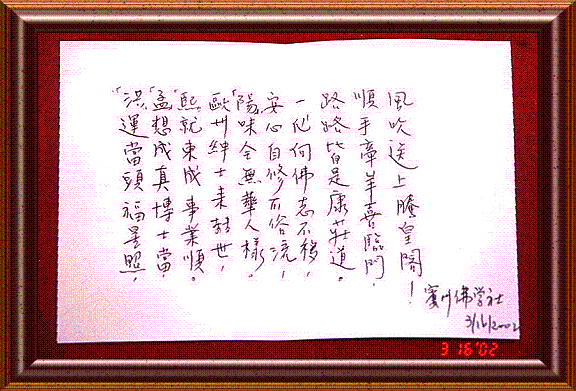 風吹送上騰皇閣!
順手牽羊喜臨門,
路路皆是康莊道。
一心向佛志不移,
安心自修不俗流,
"陽"味全無華人樣。
歐州紳士来世,
"熙"就東成事業順。
"孟"想成真博士當,
"洪"運當頭福星照,
賓州佛学社
3/16/2002
3 16 '02